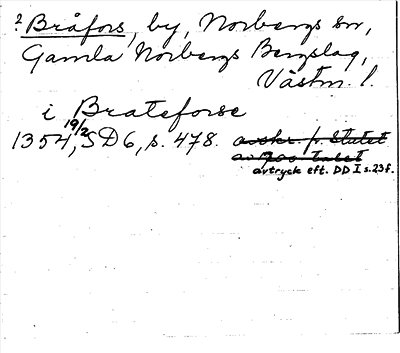 ? Bråfors, by, Norbergs sn,
Gamla Norbergs Bergslag,
Västm. l.
i Brateforse
19/2
1354, SD6, s. 478. avskr. fr. slutet
av 700 talet
avtryck eft. DD I s. 23 f.